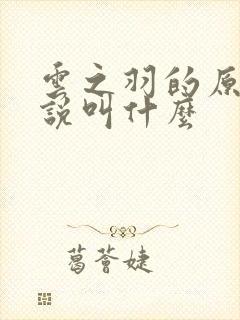 雲之羽的原
說叫什麼
葛薈婕